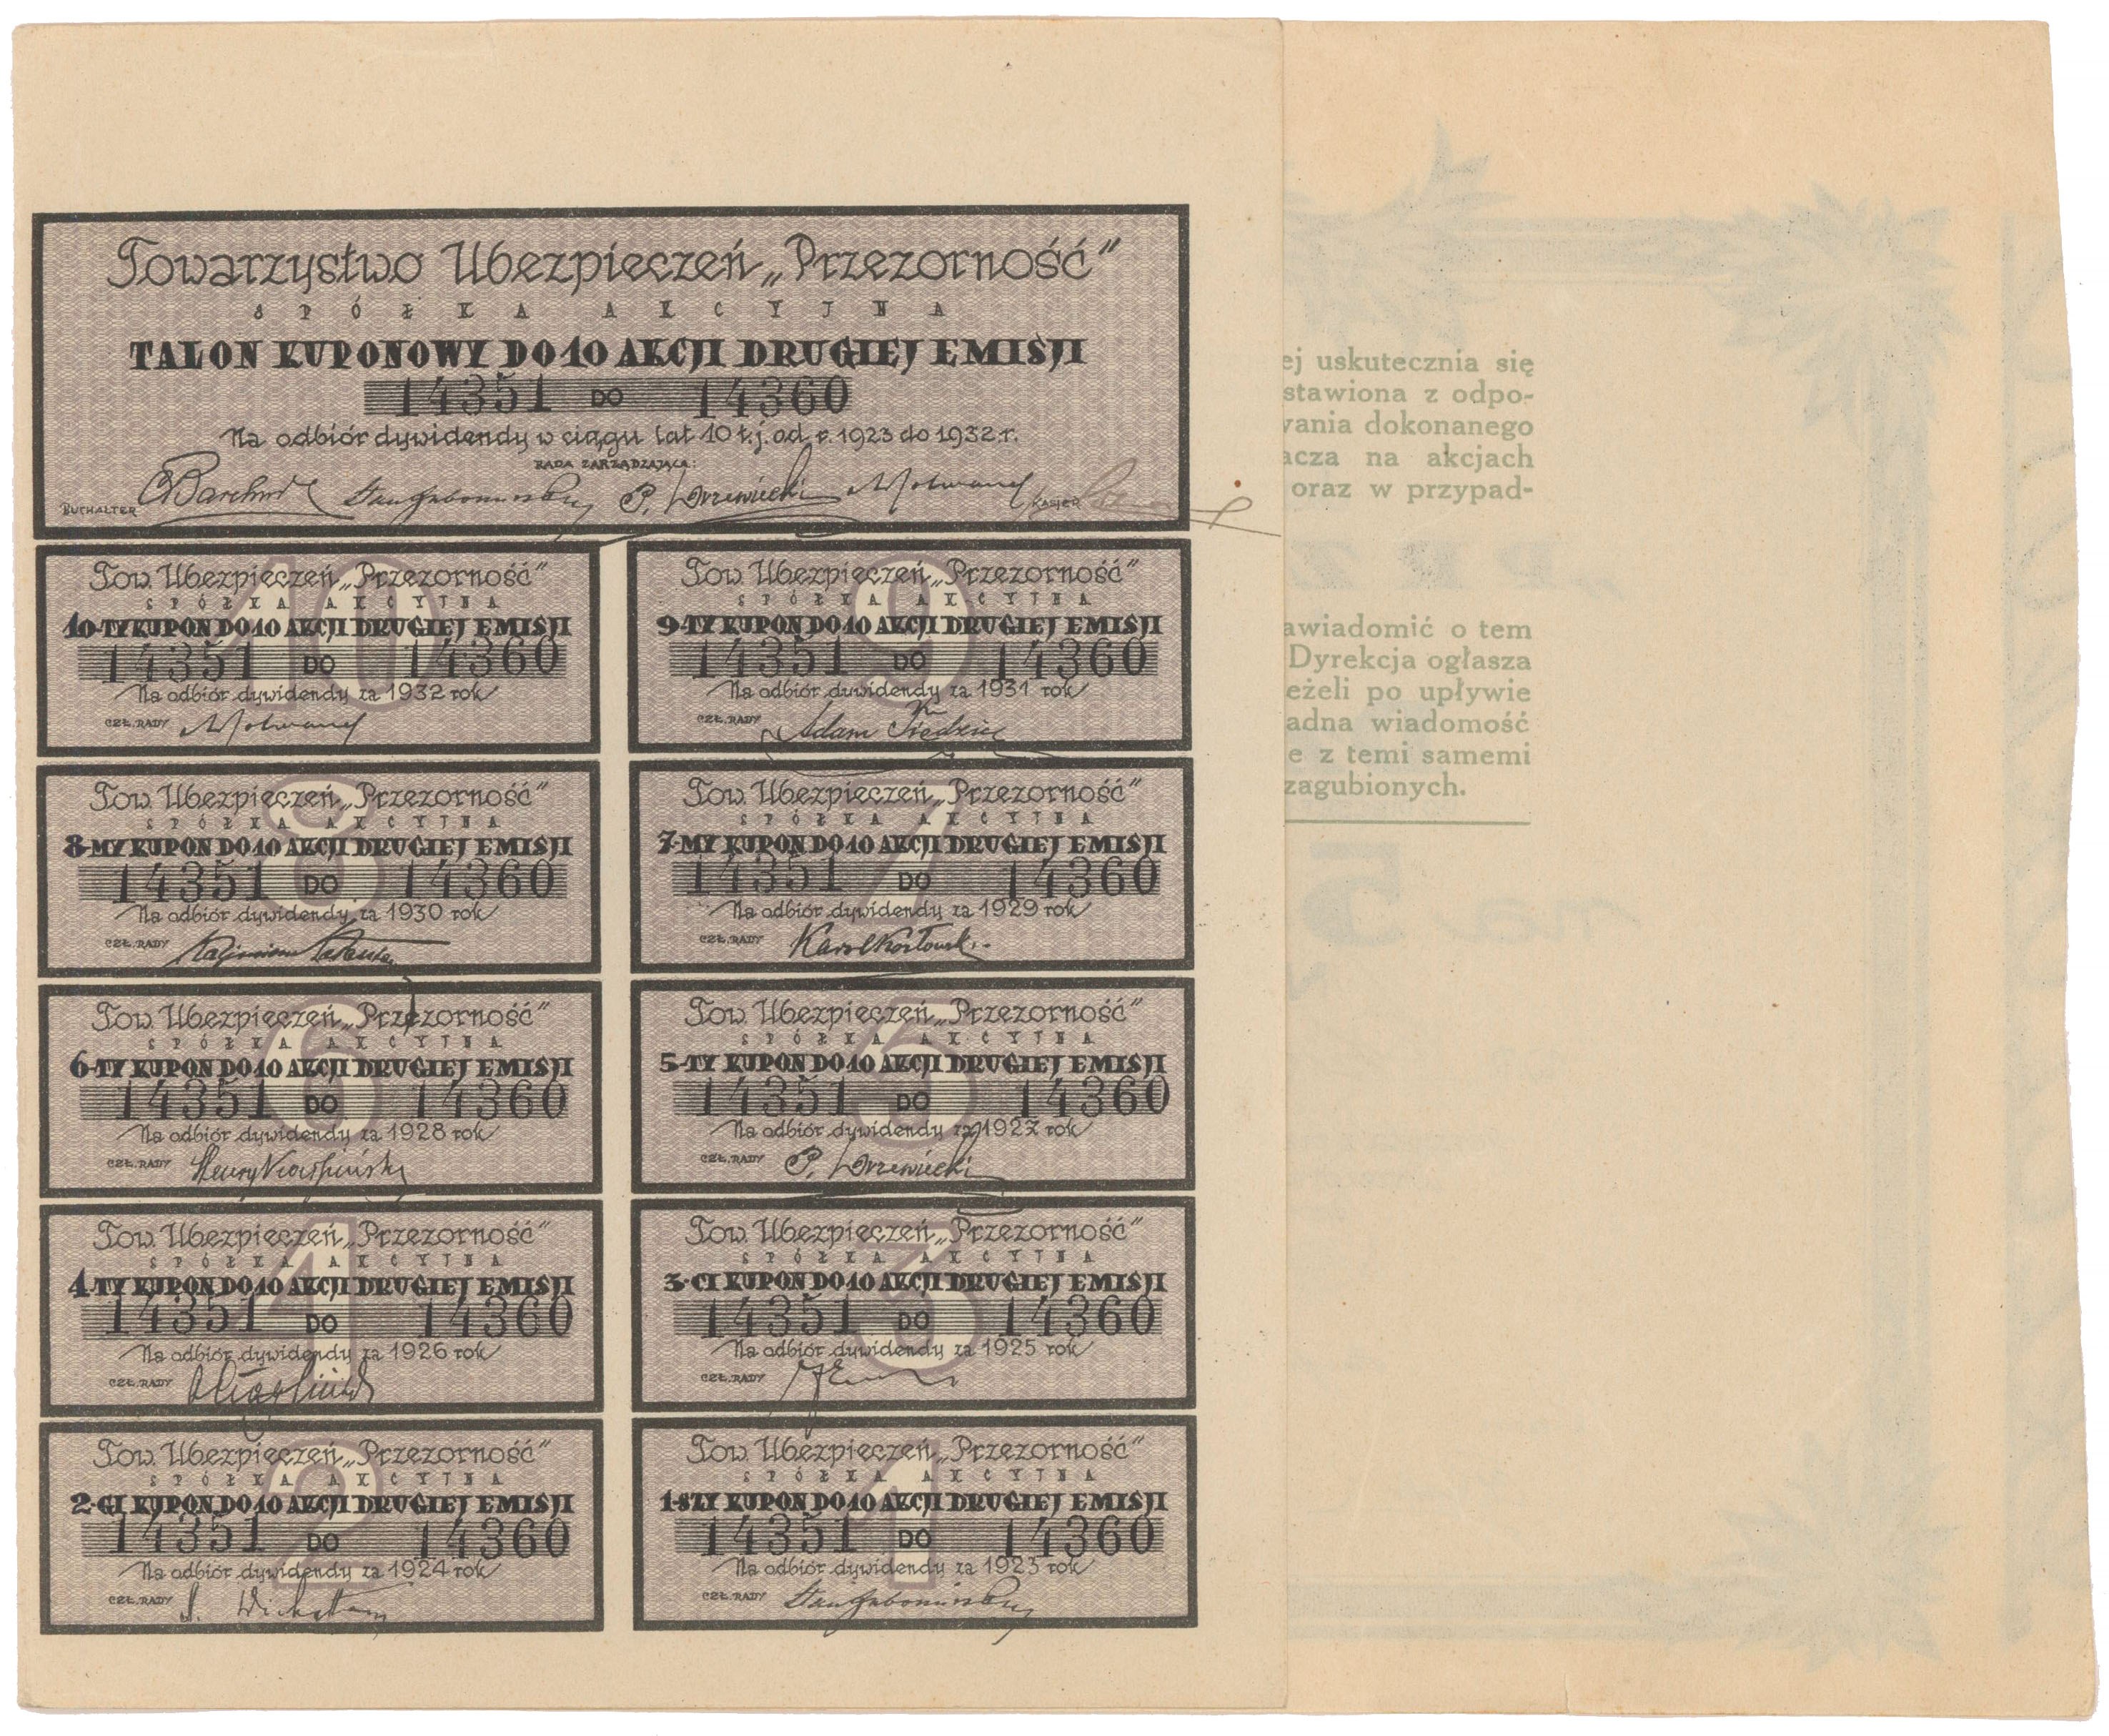 Towarzystwo Ubezpieczeń „Przezorność"
SPÓŁKA AKCYJNA
TALON KUPONOWY DO 10 AKCJI DRUGIEJ EMISJI
14351 DO 14360
Na odbiór dywidendy w ciągu lat 10 t.j. od r. 1923 do 1932 r.
RADA ZARZĄDZAJĄCA:
BUCHALTER P. Drzewiecki KASJER
Tow. Ubezpieczeń „Przezorność"
SPÓŁKA AKCYJNA
10-TY KUPON DO 10 AKCJI DRUGIEJ EMISJI
14351 DO 14360
Na odbiór dywidendy za 1932 rok
CZŁ. RADY
Tow. Ubezpieczeń „Przezorność"
SPÓŁKA AKCYJNA
9-TY KUPON DO 10 AKCJI DRUGIEJ EMISJI
14351 DO 14360
Na odbiór dywidendy za 1931 rok
CZŁ. RADY Adam
Tow. Ubezpieczeń „Przezorność"
SPÓŁKA AKCYJNA
8-MY KUPON DO 10 AKCJI DRUGIEJ EMISJI
14351 DO 14360
Na odbiór dywidendy za 1930 rok
CZŁ. RADY
Tow. Ubezpieczeń „Przezorność"
SPÓŁKA AKCYJNA
7-MY KUPON DO 10 AKCJI DRUGIEJ EMISJI
14351 DO 14360
Na odbiór dywidendy za 1929 rok
CZŁ. RADY Karol Kozłowski
Tow. Ubezpieczeń „Przezorność"
SPÓŁKA AKCYJNA
6-TY KUPON DO 10 AKCJI DRUGIEJ EMISJI
14351 DO 14360
Na odbiór dywidendy za 1928 rok
CZŁ. RADY
Tow. Ubezpieczeń „Przezorność"
SPÓŁKA AKCYJNA
5-TY KUPON DO 10 AKCJI DRUGIEJ EMISJI
14351 DO 14360
Na odbiór dywidendy za 1927 rok
CZŁ. RADY P. Drzewiecki
Tow. Ubezpieczeń „Przezorność"
SPÓŁKA AKCYJNA
4-TY KUPON DO 10 AKCJI DRUGIEJ EMISJI
14351 DO 14360
Na odbiór dywidendy za 1926 rok
CZŁ. RADY
Tow. Ubezpieczeń „Przezorność"
SPÓŁKA AKCYJNA
3-CI KUPON DO 10 AKCJI DRUGIEJ EMISJI
14351 DO 14360
Na odbiór dywidendy za 1925 rok
CZŁ. RADY
Tow. Ubezpieczeń „Przezorność"
SPÓŁKA AKCYJNA
2-GI KUPON DO 10 AKCJI DRUGIEJ EMISJI
14351 DO 14360
Na odbiór dywidendy za 1924 rok
CZŁ. RADY
Tow. Ubezpieczeń „Przezorność"
SPÓŁKA AKCYJNA
1-SZY KUPON DO 10 AKCJI DRUGIEJ EMISJI
14351 DO 14360
Na odbiór dywidendy za 1923 rok
CZŁ. RADY
ej uskutecznia się
stawiona z odpo-
wania dokonanego
acza na akcjach
oraz w przypad-
awiadomić o tem
Dyrekcja ogłasza
eżeli po upływie
adna wiadomość
e z temi samemi
zagubionych.